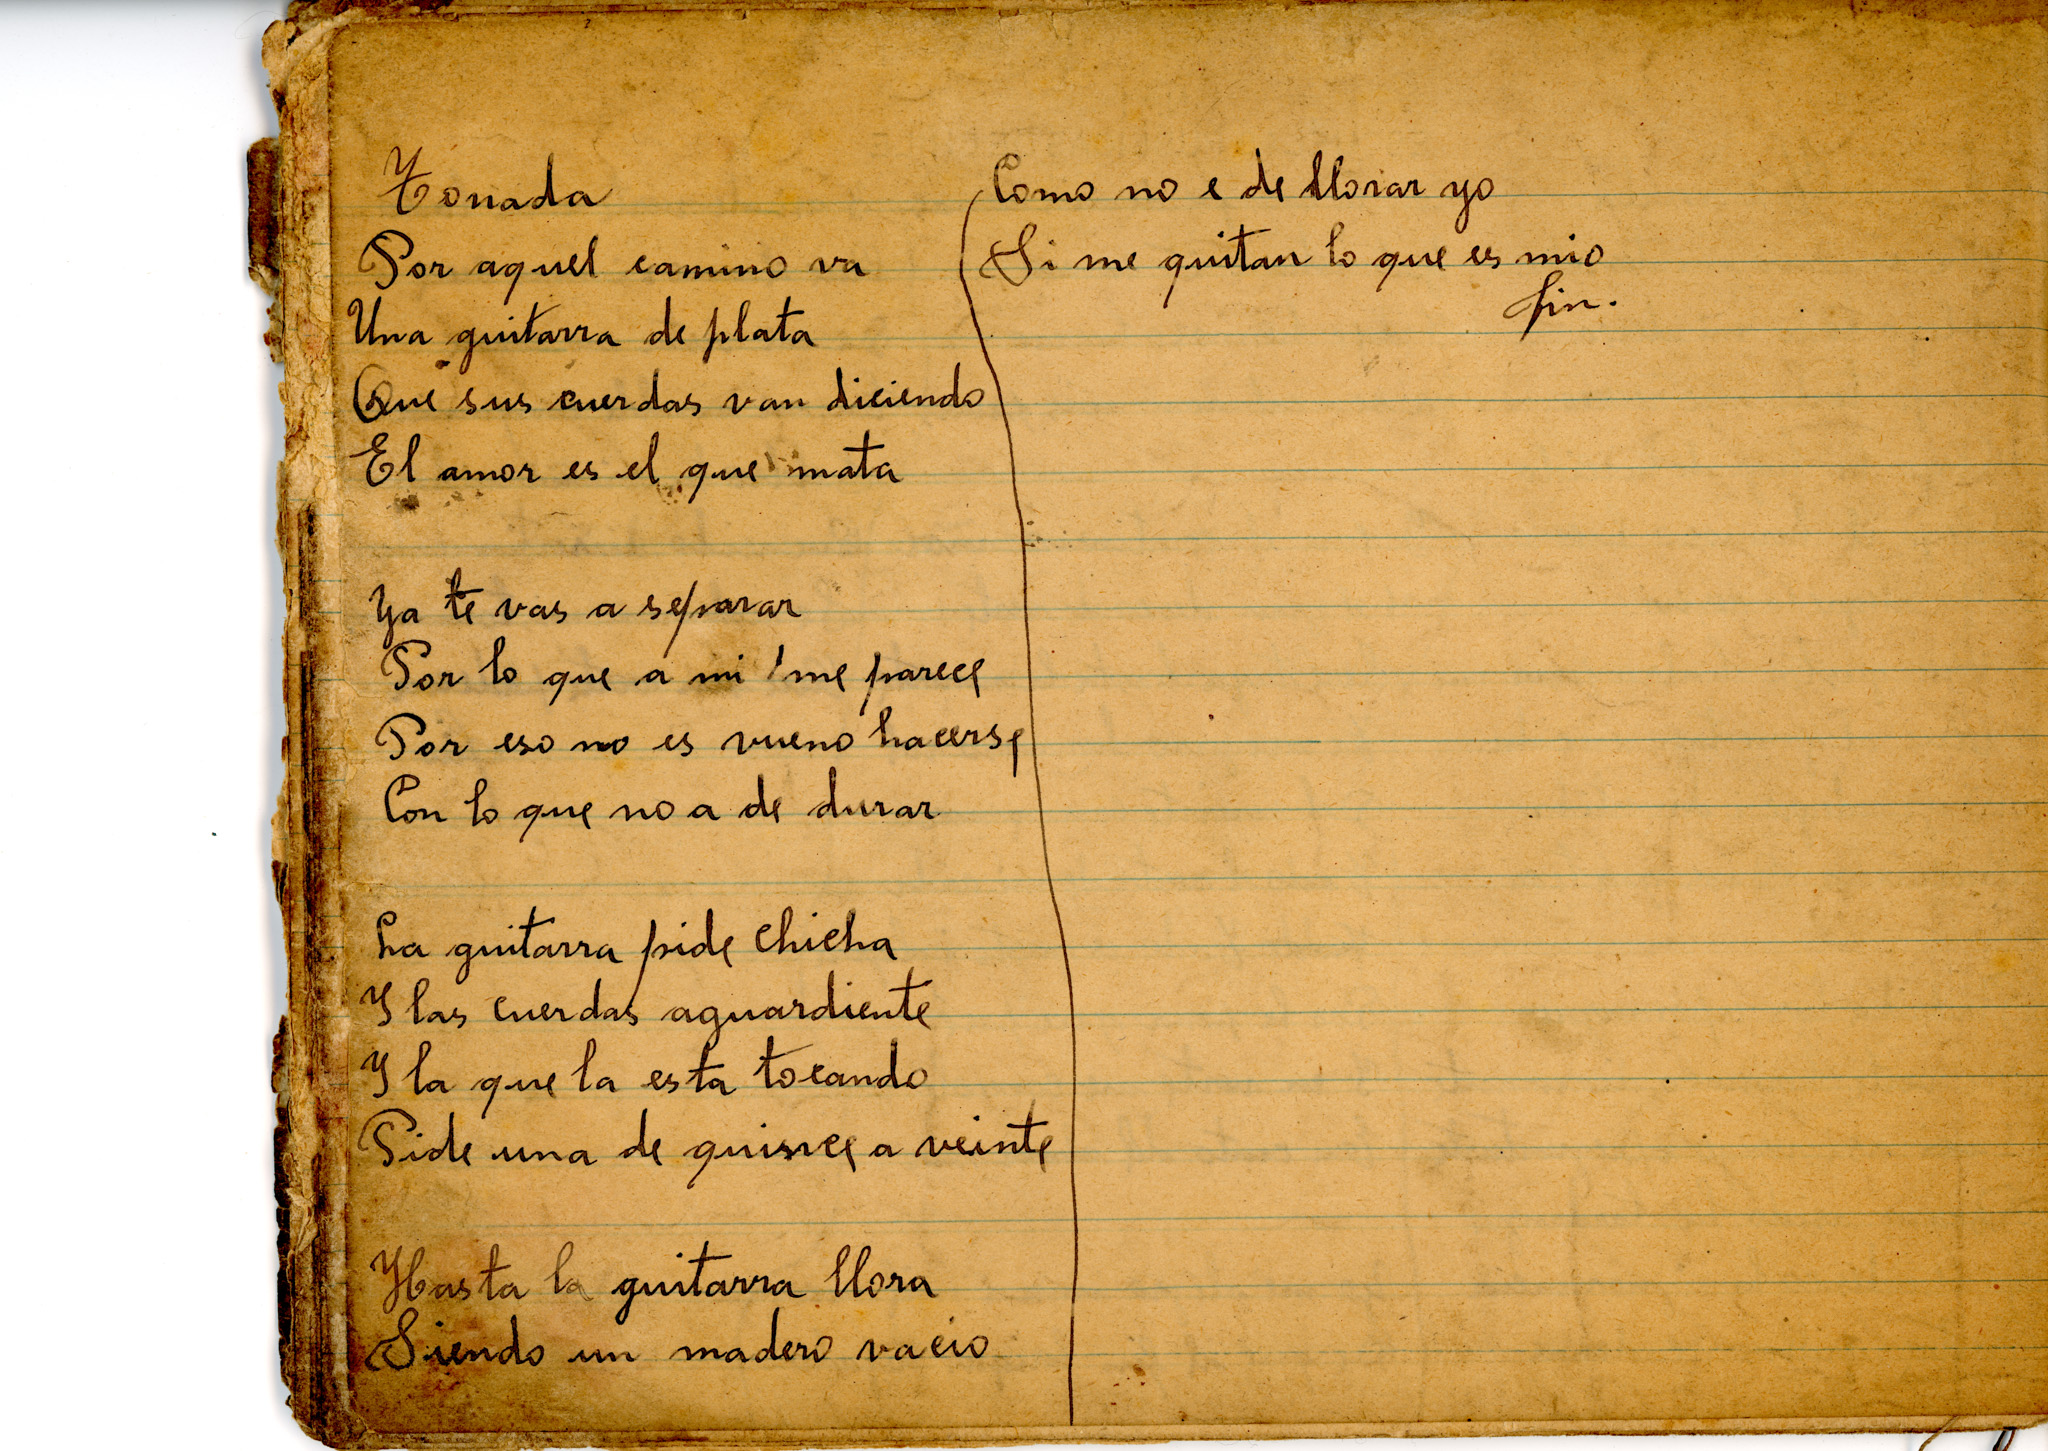 Tonada
Por aquel camino va
Una guitarra de plata
Que sus cuerdas van diciendo
El amor es el que mata
Ya te vas a separar
Por lo que a mi me parece
Por eso no es vueno hacerse
Con lo que no a de durar
La guitarra pide chicha
Y las cuerdas aguardiente
Y la que la esta tocando
Pide una de quince a veinte
Hasta la guitarra llora
Siendo un madero vacio
Como no e de llorar yo
Si me quitan lo que es mio
fin.